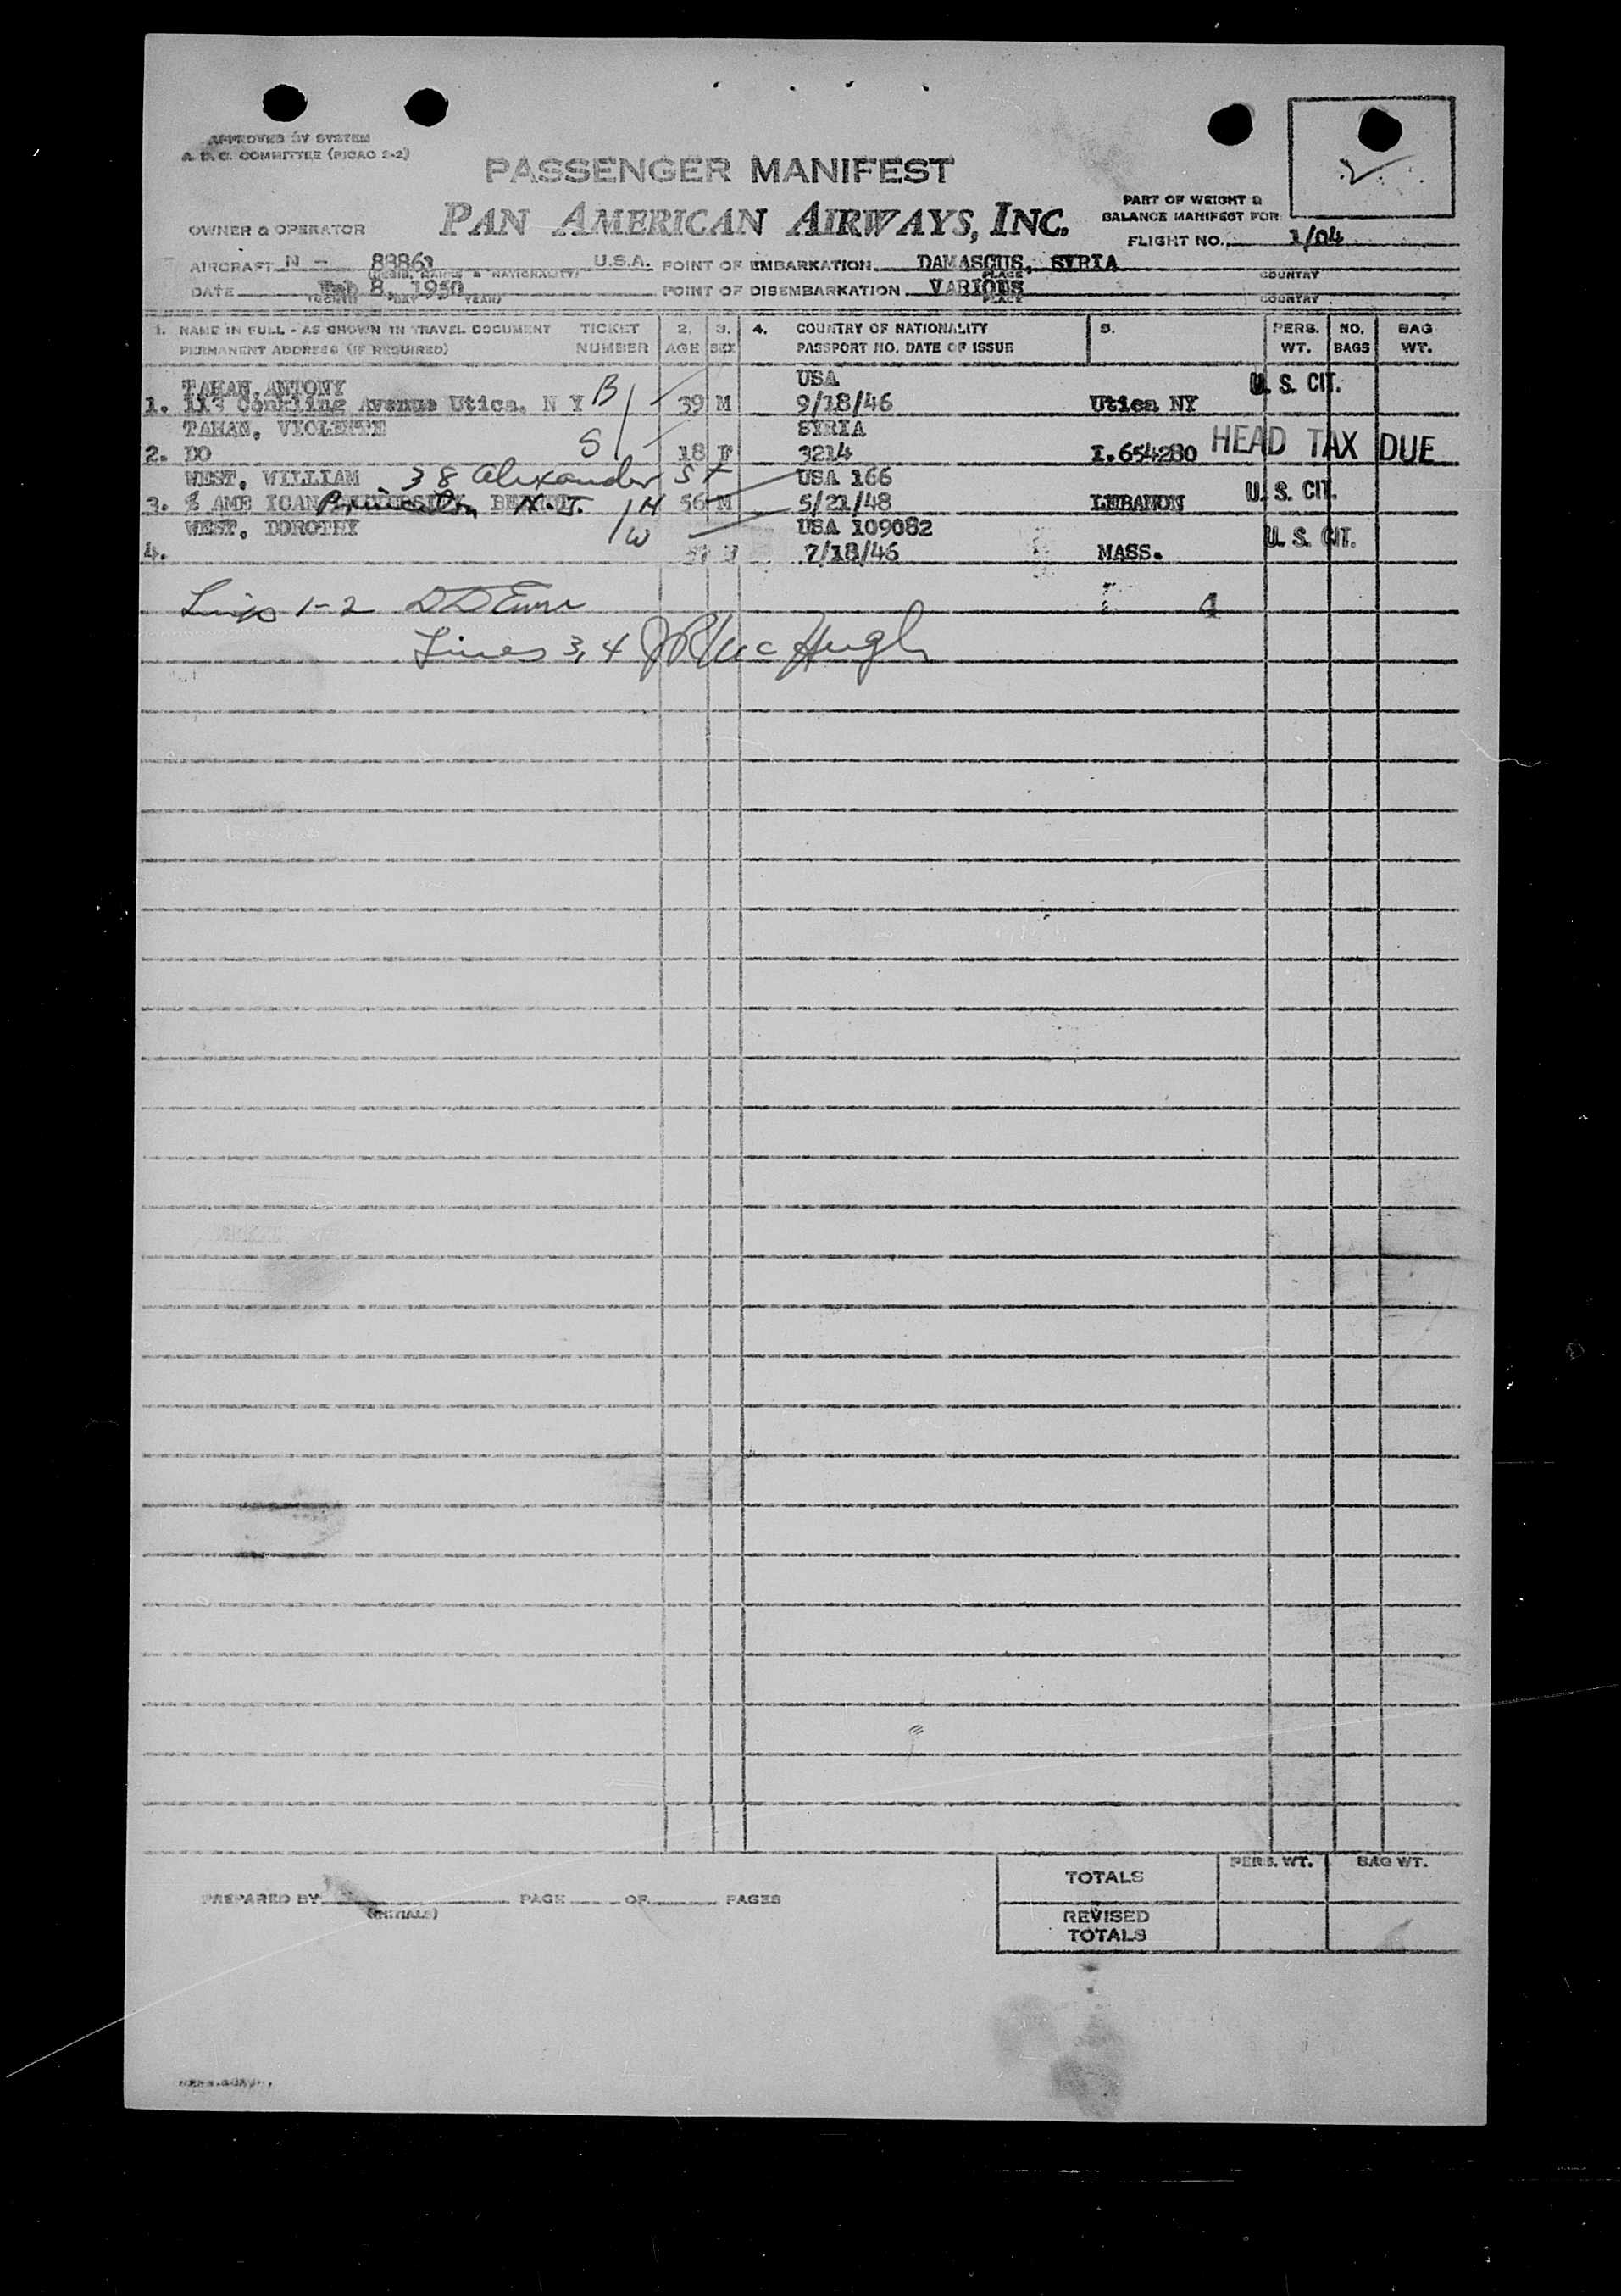 APPROVED BY SYSTEM
A. D. C. COMMITTEE (PICAO 2-2)
PASSENGER MANIFEST
PART OF WEIGHT &
BALANCE MANIFEST FOR
OWNER & OPERATOR PAN AMERICAN AIRWAYS, INC.
FLIGHT NO. 1/04
AIRCRAFT N - 88861 U.S.A. POINT OF EMBARKATION DAMASCUS, SYRIA
PLACE COUNTRY
DATE Feb 8, 1950 POINT OF DISEMBARKATION VARIOUS
(MONTH DAY YEAR) PLACE COUNTRY
1. NAME IN FULL - AS SHOWN IN TRAVEL DOCUMENT TICKET 2. 3. 4. COUNTRY OF NATIONALITY 5. PERS. NO. BAG
PERMANENT ADDRESS (IF REQUIRED) NUMBER AGE SEX PASSPORT NO. DATE OF ISSUE WT. BAGS WT.
TAHAN, ANTONY B USA U. S. CIT.
1. 113 Conkling Avenue Utica, N Y 39 M 9/18/46 Utica NY
TAHAN, VIOLETTE S SYRIA
2. DO 18 F 3214 I.654280 HEAD TAX DUE
WEST, WILLIAM 38 Alexander St USA 166
3. % AME ICAN Princeton N.J. 1H 56 M 5/21/48 LEBANON U. S. CIT.
WEST, DOROTHY 1W USA 109082 U. S. CIT.
4. 7/18/46 MASS.
Lines 1-2 4
Lines 3, 4
TOTALS PERS. WT. BAG WT.
PREPARED BY PAGE OF PAGES
(INITIALS)
REVISED
TOTALS